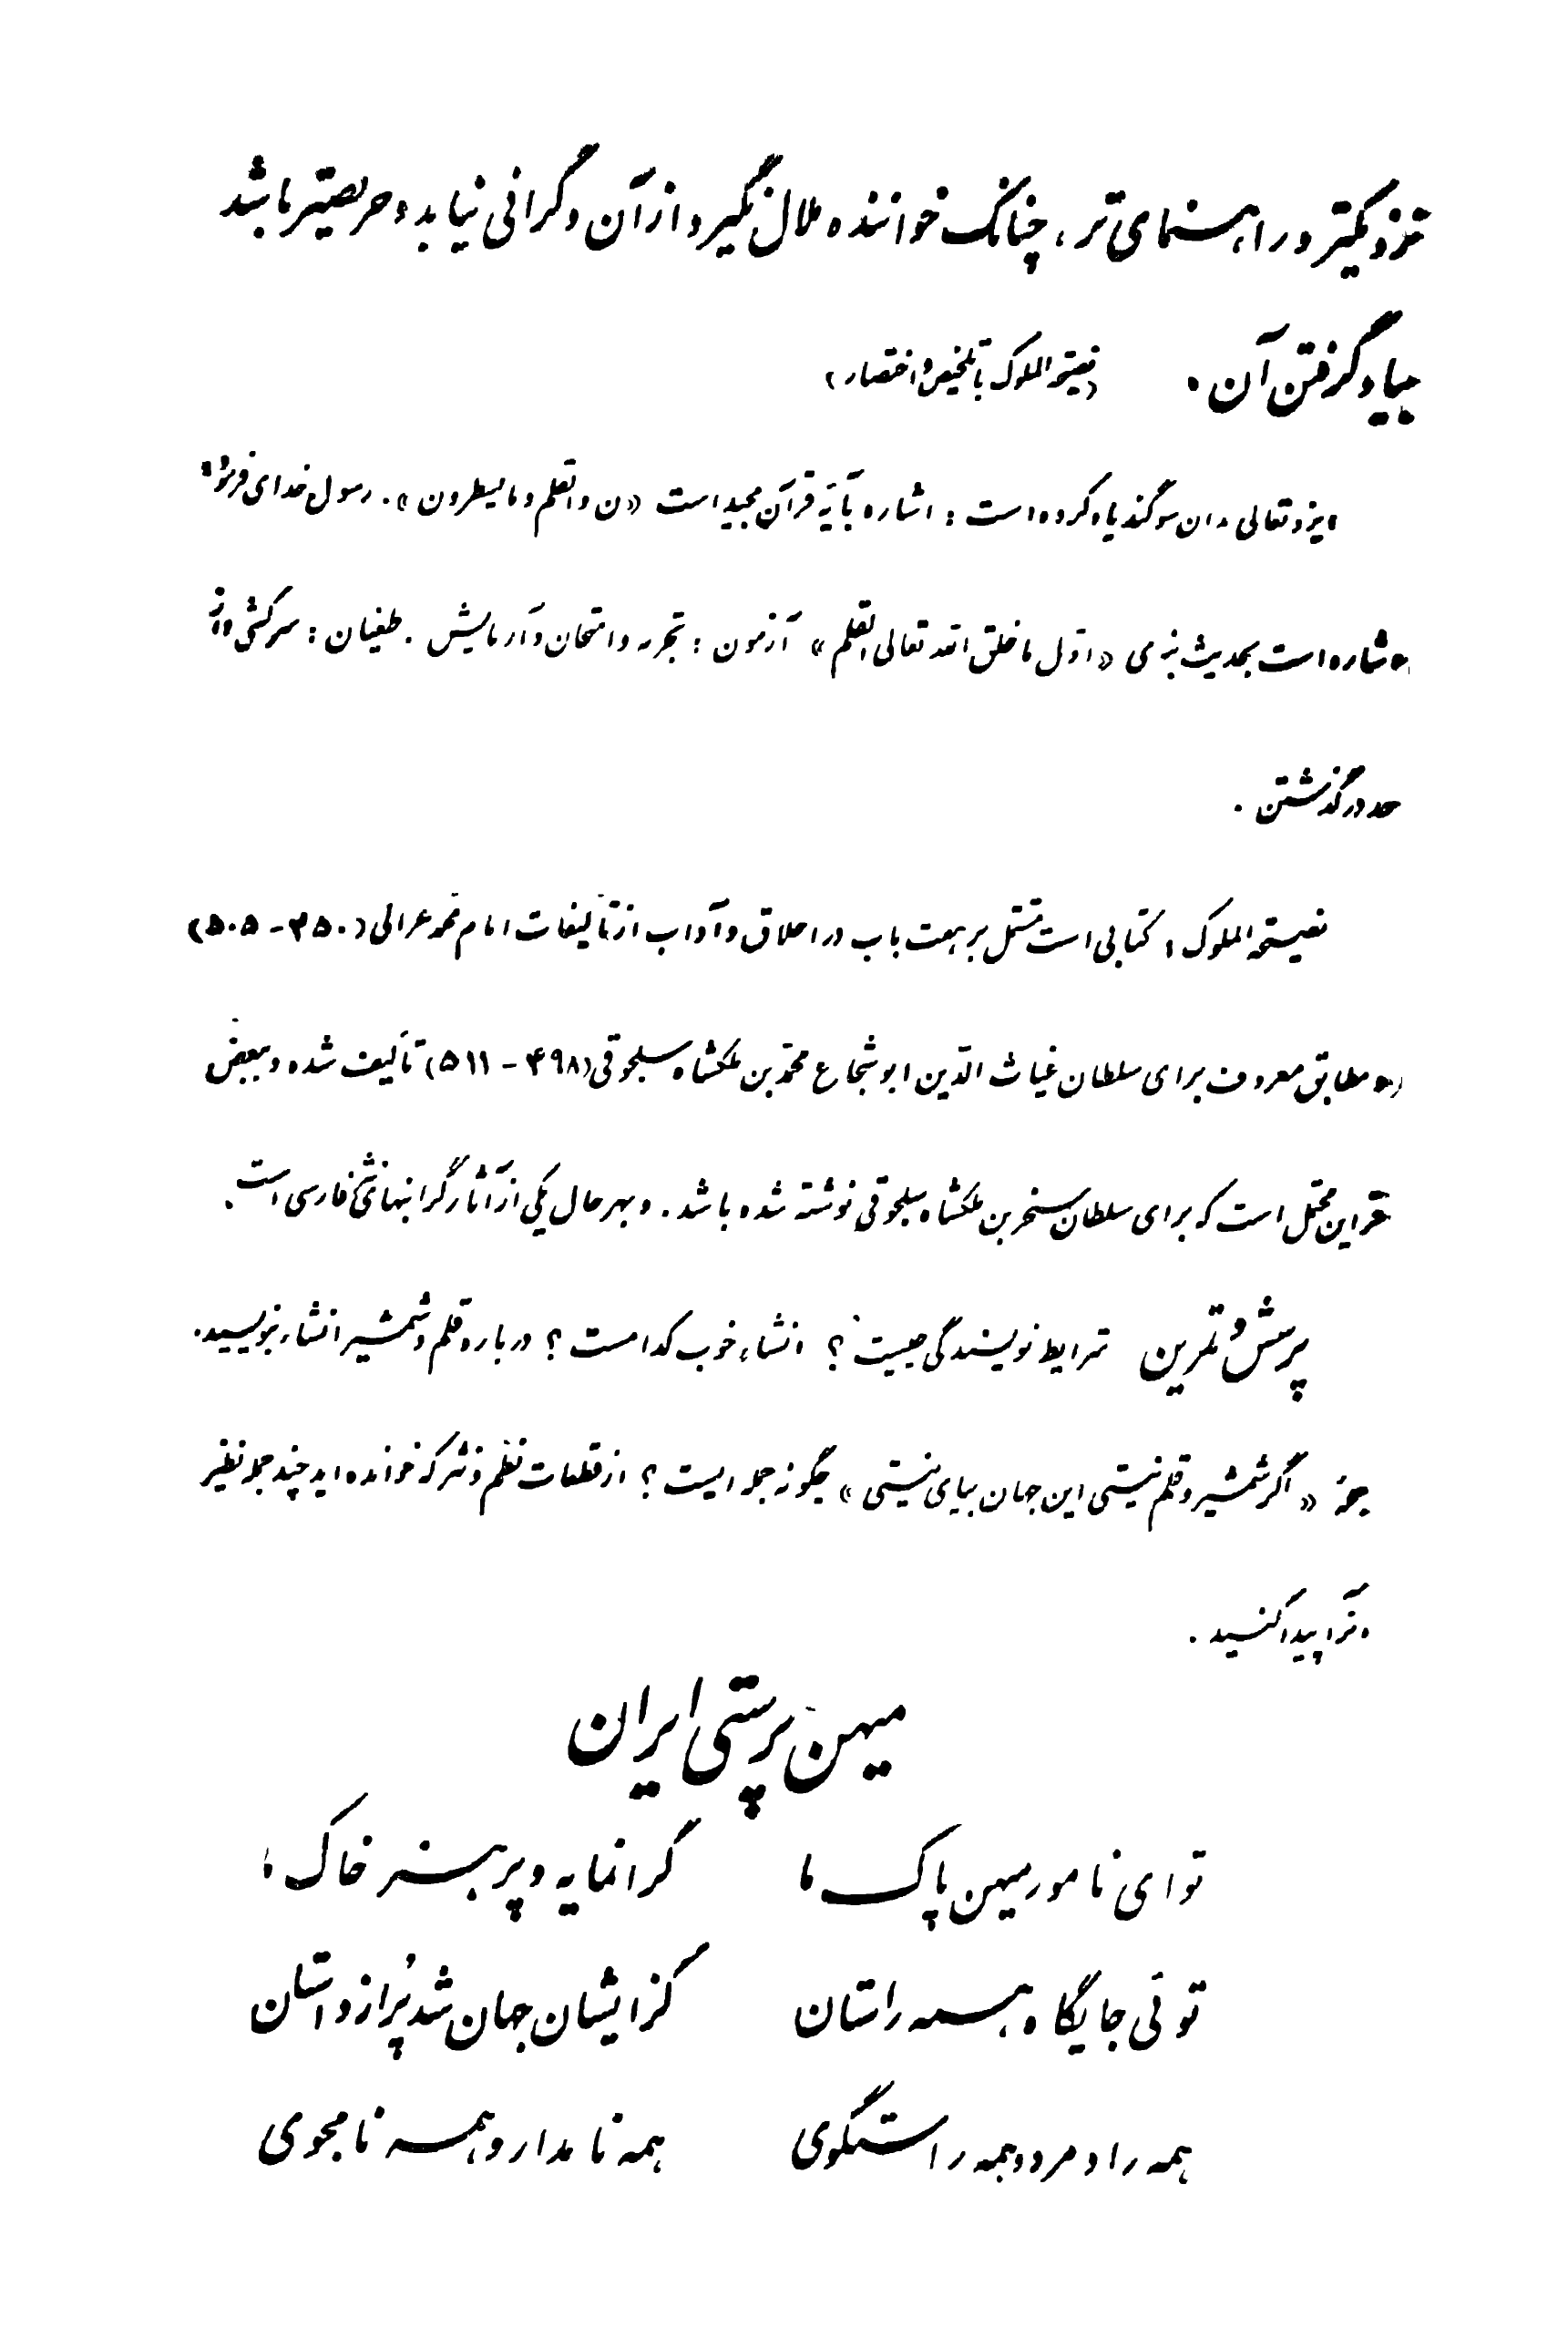 نزدیکتر و راهنمای‌تر، چنانک خواننده ملال نگیرد از آن و گرانی نیاید و حریصتر باشد
بیاد گرفتن آن. (نصیحة الملوک با تلخیص و اختصار)
ایزد تعالی بدان سوگند یاد کرده است: اشاره بآیهٔ قرآن مجید است «ن و القلم و ما یسطرون». رسول خدای فرمود:
اشاره است بحدیث نبوی «اوّل ما خلق الله تعالی القلم» آزمون: تجربه و امتحان و آزمایش. طغیان: سرکشی و از
حد درگذشتن.
نصیحة الملوک: کتابی است مشتمل بر هفت باب در اخلاق و آداب از تألیفات امام محمد غزالی (۴۵۰ - ۵۰۵)
که مطابق معروف برای سلطان غیاث الدّین ابوشجاع محمّد بن ملکشاه سلجوقی (۴۹۸ - ۵۱۱) تألیف شده و ببعض
قراین محتمل است که برای سلطان سنجر بن ملکشاه سلجوقی نوشته شده باشد. و بهر حال یکی از آثار گرانبهای نثر فارسی است.
پرسش و تمرین شرایط نویسندگی چیست؟ انشاء خوب کدامست؟ درباره قلم و شمشیر انشاء بنویسید.
جملهٔ «اگر شمشیر و قلم نیستی این جهان بپای نیستی» چگونه جمله ایست؟ از قطعات نظم و نثر که خوانده اید چند جمله نظیر
آنرا پیدا کنید.
میهن پرستی ایران
تو ای نامور میهن پاک ما گرانمایه و پر هنر خاک ما
توئی جایگاه همه راستان کز ایشان جهان شد پُر از داستان
همه راد مرد و همه راستگوی همه نامدار و همه نامجوی